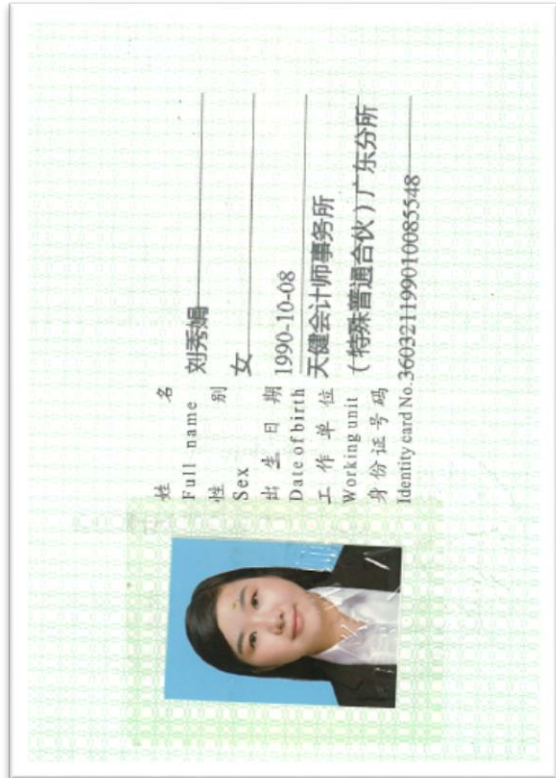 姓 名 刘秀娟
Full name
性 别 女
Sex
出 生 日 期 1990-10-08
Date of birth
工 作 单 位 天健会计师事务所
Working unit (特殊普通合伙)广东分所
身 份 证 号 码
Identity card No. 360321199010085548